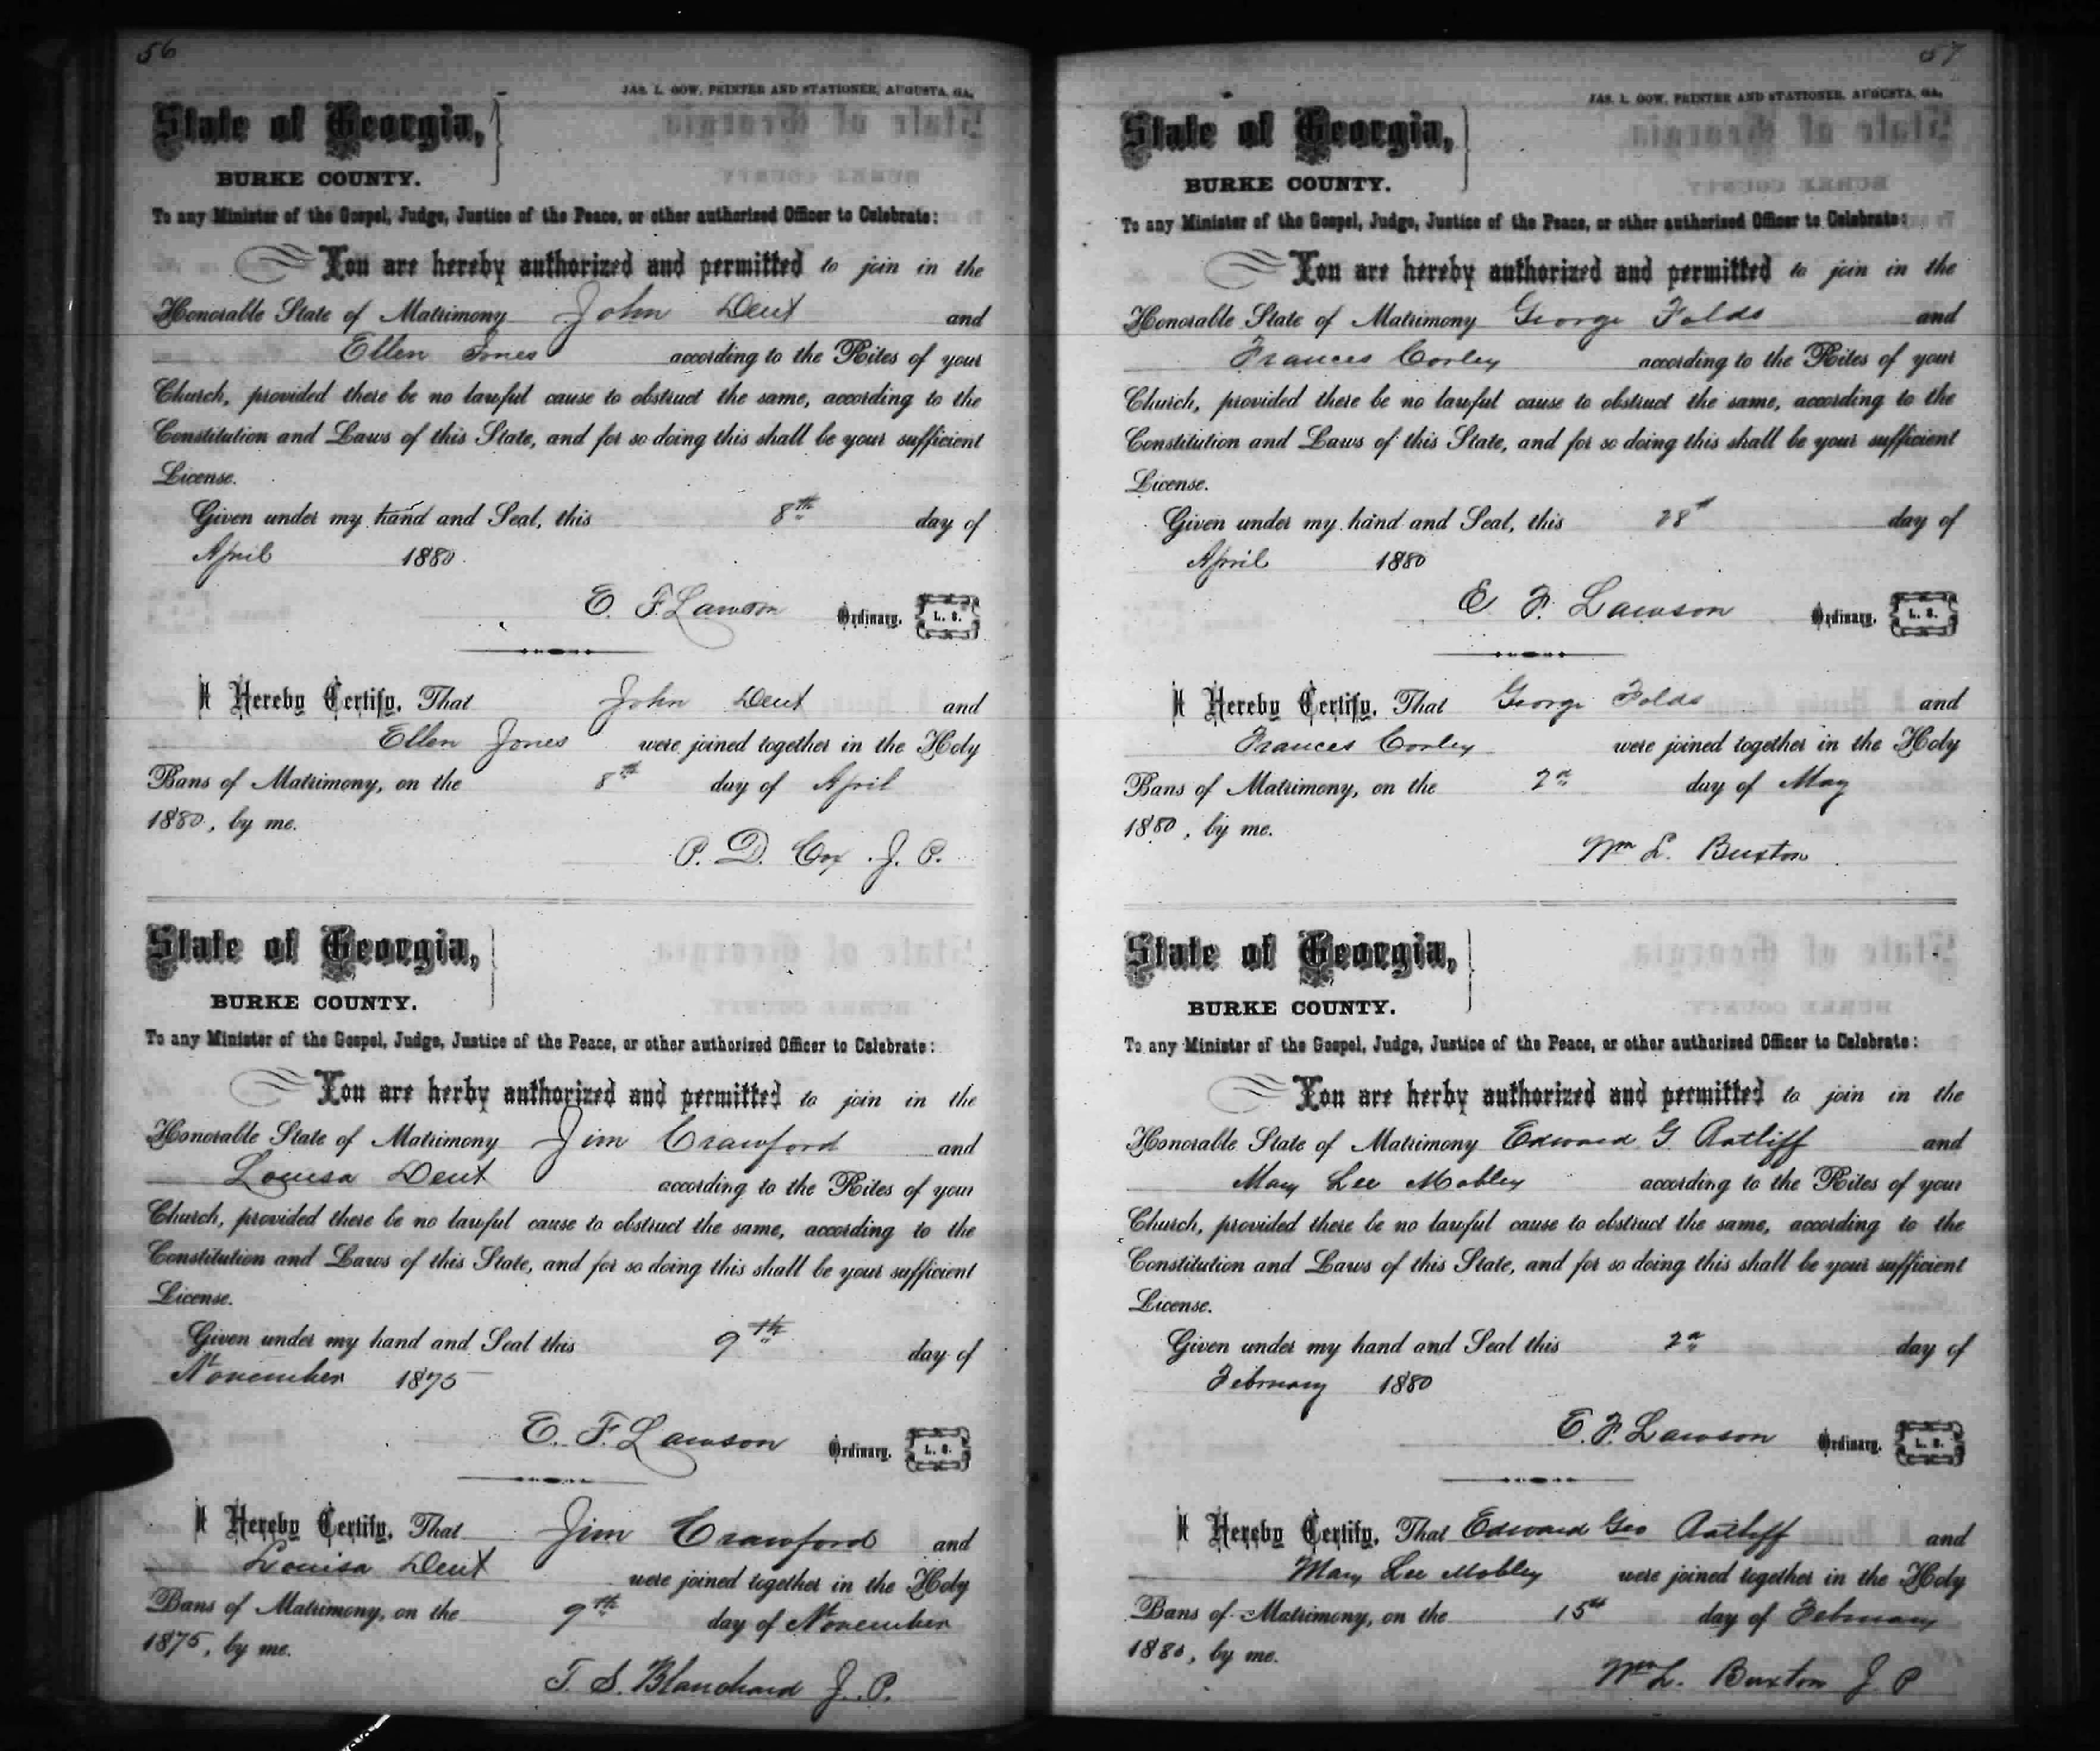 56
JAS. L. GOW, PRINTER AND STATIONER, AUGUSTA, GA.
State of Georgia,
BURKE COUNTY.
To any Minister of the Gospel, Judge, Justice of the Peace, or other authorized Officer to Celebrate:
You are hereby authorized and permitted to join in the
Honorable State of Matrimony John Dent and
Ellen Jones according to the Rites of your
Church, provided there be no lawful cause to obstruct the same, according to the
Constitution and Laws of this State, and for so doing this shall be your sufficient
License.
Given under my hand and Seal, this 8th day of
April 1880
E. F. Lawson Ordinary. L. S.
I Hereby Certify, That John Dent and
Ellen Jones were joined together in the Holy
Bans of Matrimony, on the 8th day of April
1880, by me.
P. D. Cox J. P.
State of Georgia,
BURKE COUNTY.
To any Minister of the Gospel, Judge, Justice of the Peace, or other authorized Officer to Celebrate:
You are herby authorized and permitted to join in the
Honorable State of Matrimony Jim Crawford and
Louisa Dent according to the Rites of your
Church, provided there be no lawful cause to obstruct the same, according to the
Constitution and Laws of this State, and for so doing this shall be your sufficient
License.
Given under my hand and Seal this 9th day of
November 1875
E. F. Lawson Ordinary. L. S.
I Hereby Certify, That Jim Crawford and
Louisa Dent were joined together in the Holy
Bans of Matrimony, on the 9th day of November
1875, by me.
T. S. Blanchard J. P.
57
JAS. L. GOW, PRINTER AND STATIONER, AUGUSTA, GA.
State of Georgia,
BURKE COUNTY.
To any Minister of the Gospel, Judge, Justice of the Peace, or other authorized Officer to Celebrate:
You are hereby authorized and permitted to join in the
Honorable State of Matrimony George Folds and
Frances Corley according to the Rites of your
Church, provided there be no lawful cause to obstruct the same, according to the
Constitution and Laws of this State, and for so doing this shall be your sufficient
License.
Given under my hand and Seal, this day of
April 1880
E. F. Lawson Ordinary. L. S.
I Hereby Certify, That George Folds and
Frances Corley were joined together in the Holy
Bans of Matrimony, on the 2d day of May
1880, by me.
Wm L. Buxton
State of Georgia,
BURKE COUNTY.
To any Minister of the Gospel, Judge, Justice of the Peace, or other authorized Officer to Celebrate:
You are herby authorized and permitted to join in the
Honorable State of Matrimony Edward G. Ratliff and
Mary Lee Mobley according to the Rites of your
Church, provided there be no lawful cause to obstruct the same, according to the
Constitution and Laws of this State, and for so doing this shall be your sufficient
License.
Given under my hand and Seal this 2d day of
February 1880
E. F. Lawson Ordinary. L. S.
I Hereby Certify, That Edward Geo Ratliff and
Mary Lee Mobley were joined together in the Holy
Bans of Matrimony, on the 15th day of February
1880, by me.
Wm L. Buxton J. P